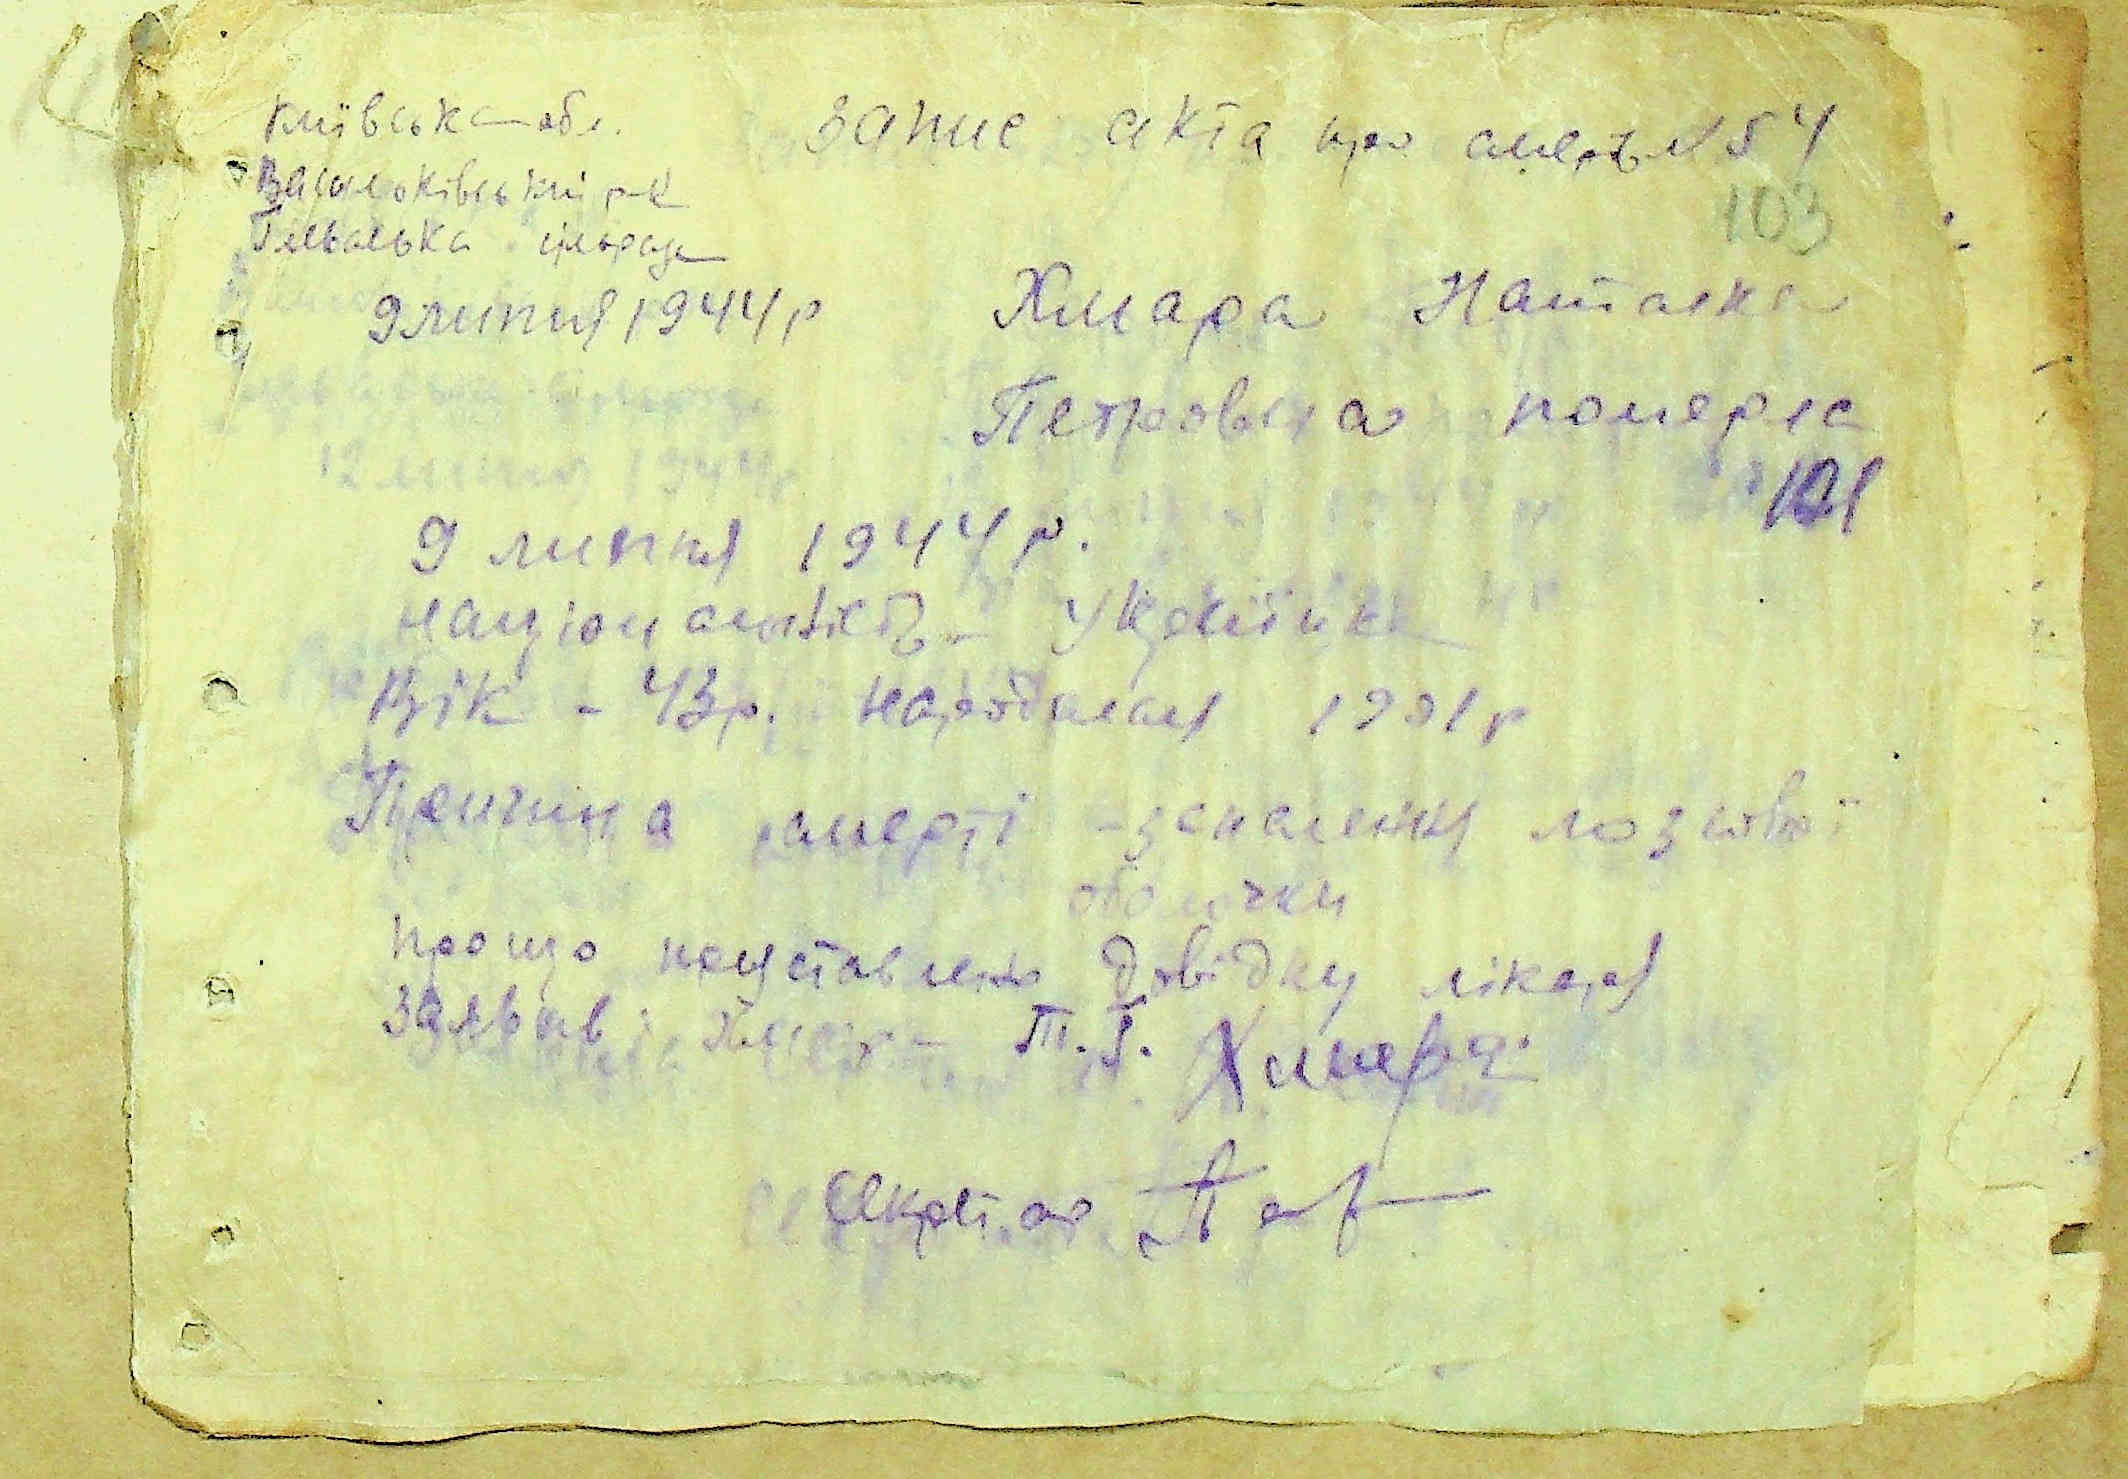 Київська обл.
Запис акта про смерть N 54
Васильківський р-н
сільрада
103
9 липня 1944 р
Хмара Наталка
Петровна померла
121
9 липня 1944 р.
національність - Українка
Вік - 43 р. народилася 1901 р
Причина смерті - запалення мозкової
оболочки
про що представлено довідку лікаря
Заявив Хмара Т. І. Хмара
Секретар